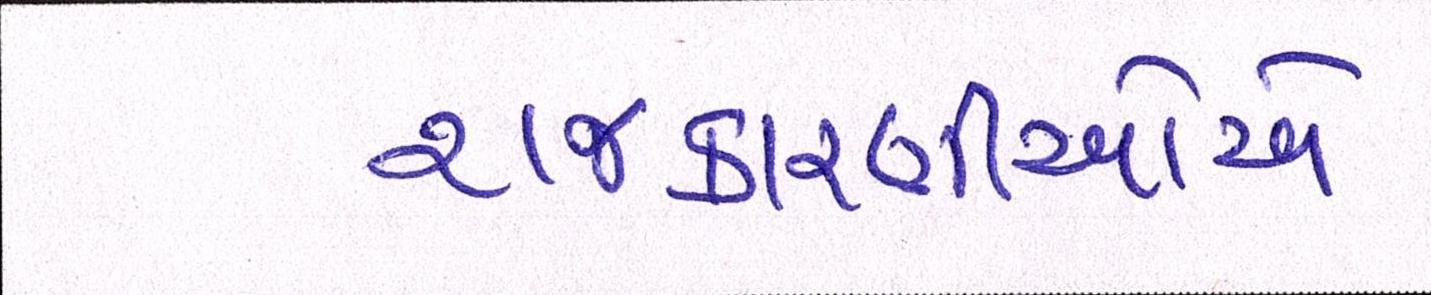 રાજકારણીઓએ